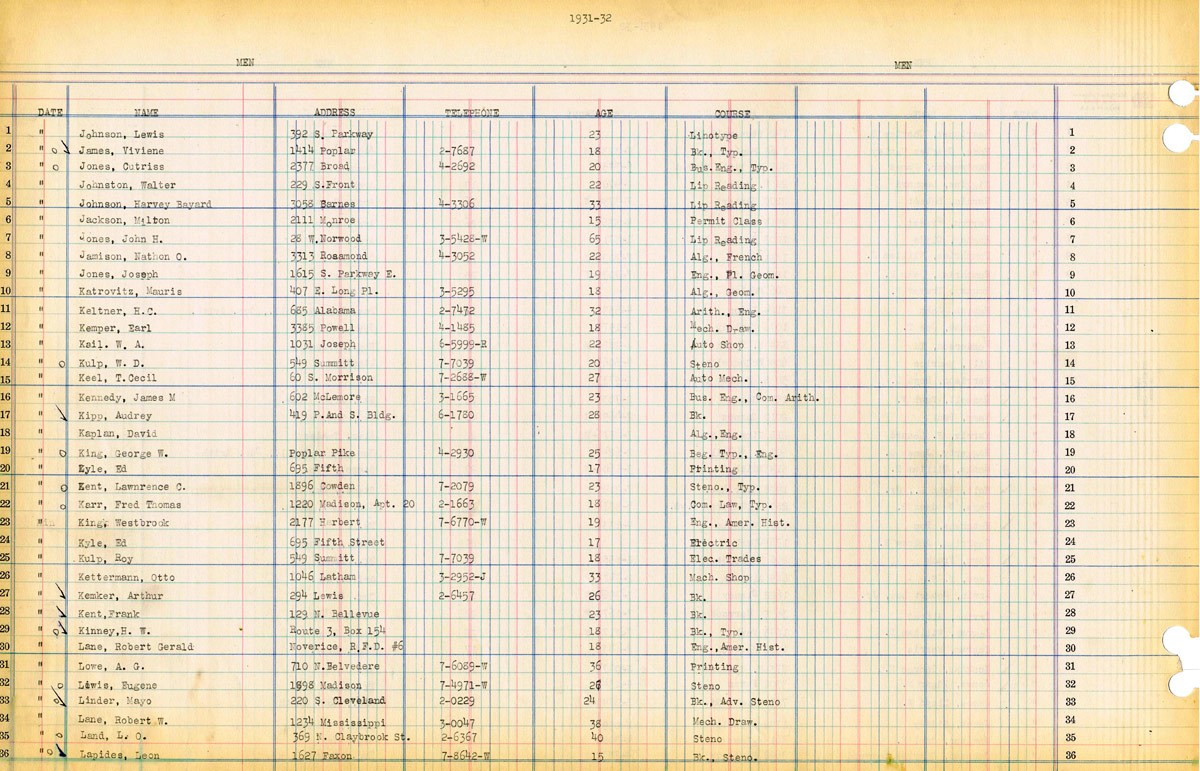 1931-32
MEN MEN
DATE NAME ADDRESS TELEPHONE AGE COURSE
1 " Johnson, Lewis 392 S. Parkway 23 Linotype 1
2 " o James, Viviene 1414 Poplar 2-7687 18 Bk., Typ. 2
3 " o Jones, Cutriss 2377 Broad 4-2692 20 Bus.Eng., Typ. 3
4 " Johnston, Walter 229 S.Front 22 Lip Reading 4
5 " Johnson, Harvey Bayard 3058 Barnes 4-3306 33 Lip Reading 5
6 " Jackson, Milton 2111 Monroe 15 Permit Class 6
7 " Jones, John H. 28 W.Norwood 3-5428-W 65 Lip Reading 7
8 " Jamison, Nathon O. 3313 Rosamond 4-3052 22 Alg., French 8
9 " Jones, Joseph 1615 S. Parkway E. 19 Eng., Pl. Geom. 9
10 " Katrovitz, Mauris 407 E. Long Pl. 3-5295 18 Alg., Geom. 10
11 " Keltner, H.C. 685 Alabama 2-7472 32 Arith., Eng. 11
12 " Kemper, Earl 3385 Powell 4-1485 18 Mech. Draw. 12
13 " Kail. W. A. 1031 Joseph 6-5999-R 22 Auto Shop 13
14 " o Kulp, W. D. 549 Summitt 7-7039 20 Steno 14
15 " Keel, T.Cecil 60 S. Morrison 7-2688-W 27 Auto Mech. 15
16 " Kennedy, James M 602 McLemore 3-1665 23 Bus. Eng., Com. Arith. 16
17 " Kipp, Audrey 419 P.And S. Bldg. 6-1780 28 Bk. 17
18 " Kaplan, David Alg.,Eng. 18
19 " o King, George W. Poplar Pike 4-2930 25 Beg. Typ., Eng. 19
20 " Kyle, Ed 695 Fifth 17 Printing 20
21 " o Kent, Lawnrence C. 1896 Cowden 7-2079 23 Steno., Typ. 21
22 " o Karr, Fred Thomas 1220 Madison, Apt. 20 2-1663 18 Com. Law, Typ. 22
23 " King, Westbrook 2177 Harbert 7-6770-W 19 Eng., Amer. Hist. 23
24 " Kyle, Ed 695 Fifth Street 17 Electric 24
25 " Kulp, Roy 549 Summitt 7-7039 18 Elec. Trades 25
26 " Kettermann, Otto 1046 Latham 3-2952-J 33 Mach. Shop 26
27 " Kemker, Arthur 294 Lewis 2-6457 26 Bk. 27
28 " Kent,Frank 129 N. Bellevue 23 Bk. 28
29 " o Kinney,H. W. Route 3, Box 154 18 Bk., Typ. 29
30 " Lane, Robert Gerald Noverice, R.F.D. #6 18 Eng.,Amer. Hist. 30
31 " Lowe, A. G. 710 N.Belvedere 7-6089-W 36 Printing 31
32 " o Lewis, Eugene 1898 Madison 7-4971-W 26 Steno 32
33 " o Linder, Mayo 220 S. Cleveland 2-0229 24 Bk., Adv. Steno 33
34 " Lane, Robert W. 1234 Mississippi 3-0047 38 Mech. Draw. 34
35 " o Land, L. O. 369 N. Claybrook St. 2-6367 40 Steno 35
36 " o Lapides, Leon 1627 Faxon 7-8642-W 15 Bk., Steno. 36